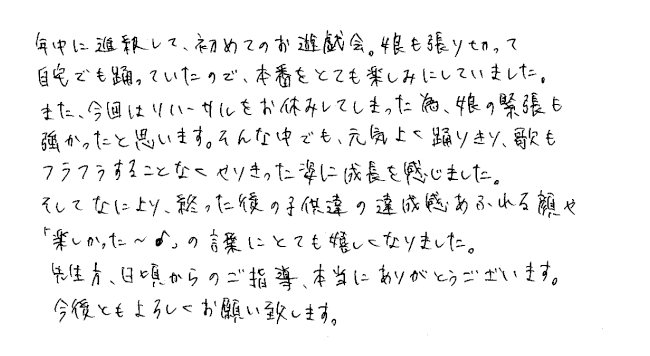 年中に進級して、初めてのお遊戯会。娘も張りきって
自宅でも踊っていたので、本番をとても楽しみにしていました。
また、今回はリハーサルをお休みしてしまった為、娘の緊張も
強かったと思います。そんな中でも、元気よく踊りきり、歌も
フラフラすることなくやりきった姿に成長を感じました。
そしてなにより、終った後の子供達の達成感あふれる顔や
「楽しかった〜♪」の言葉にとても嬉しくなりました。
先生方、日頃からのご指導、本当にありがとうございます。
今後ともよろしくお願い致します。